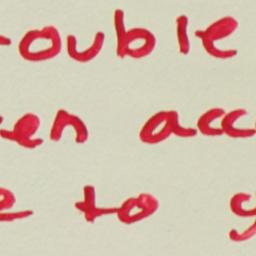 rouble
en acc
e to y